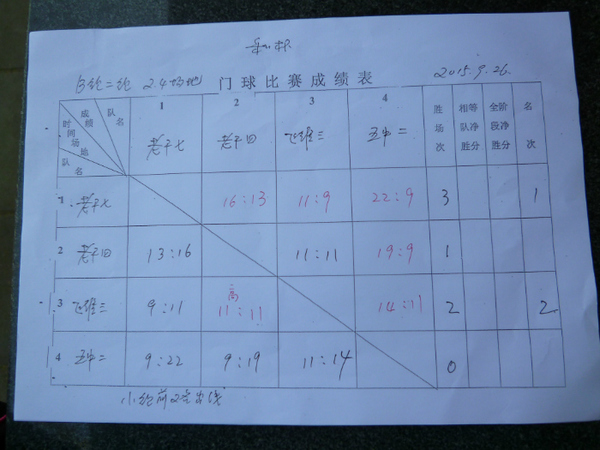 二轮 2.4场地 门球比赛成绩表 2015.9.26.
成绩 队名 时间场地 队名 1 2 3 4 胜场次 相等队净胜分 全阶段净胜分 名次
老干七 老干四 飞雄三 五中二
1 老干七 16:13 11:9 22:9 3 1
2 老干四 13:16 11:11 19:9 1
3 飞雄三 9:11 高 11:11 14:11 2 2
4 五中二 9:22 9:19 11:14 0
小轮前2名出线